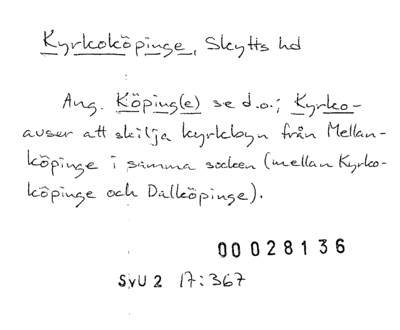 Kyrkoköpinge, Skytts hd
Ang. Köping(e) se d.o.; Kyrko-
avser att skilja kyrkbyn från Mellan-
köpinge i samma socken (mellan Kyrko-
köpinge och Dalköpinge).
00028136
SvU 2 17:367